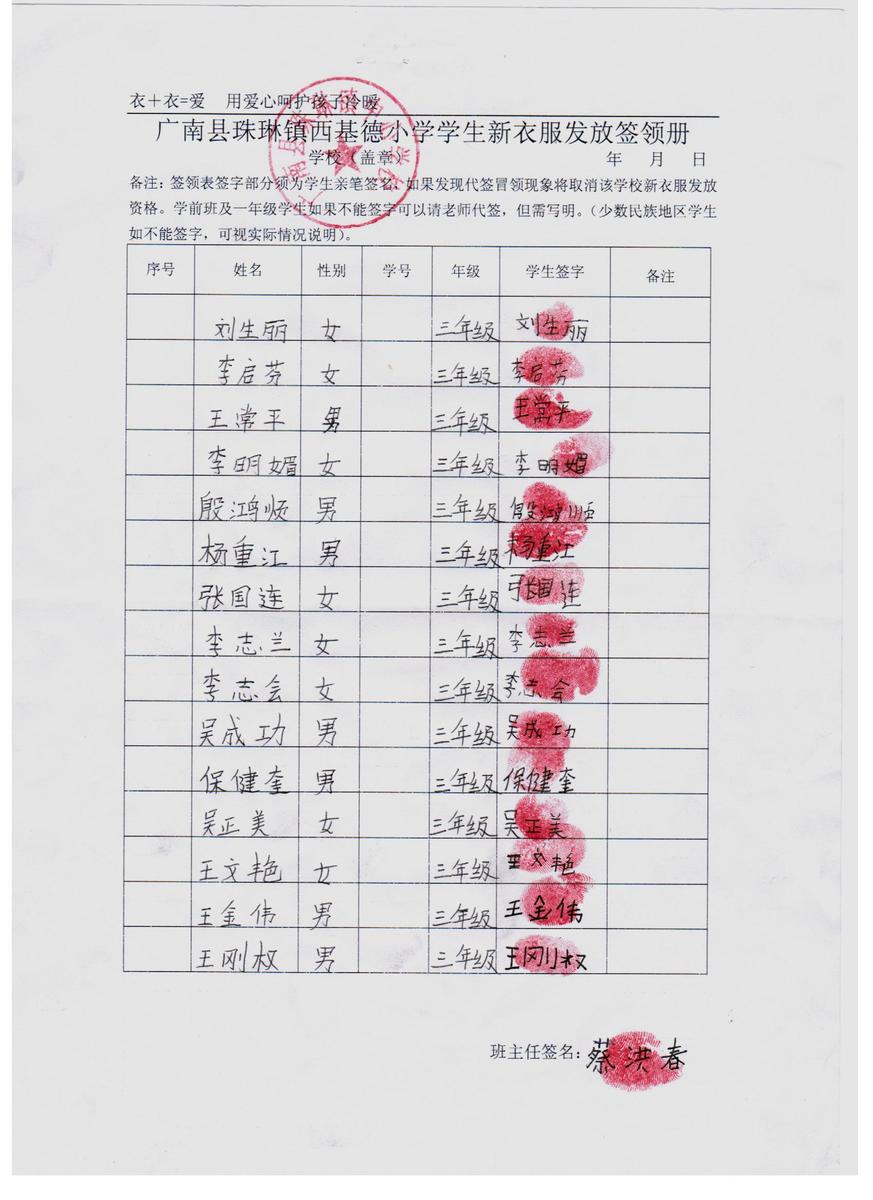 衣＋衣=爱 用爱心呵护孩子冷暖
广南县珠琳镇西基德小学学生新衣服发放签领册
学校（盖章） 年 月 日
广南县珠琳镇中心学校
备注：签领表签字部分须为学生亲笔签名，如果发现代签冒领现象将取消该学校新衣服发放
资格。学前班及一年级学生如果不能签字可以请老师代签，但需写明。（少数民族地区学生
如不能签字，可视实际情况说明）。
序号 姓名 性别 学号 年级 学生签字 备注
刘生丽 女 三年级 刘生丽
李启芬 女 三年级 李启芬
王常平 男 三年级 王常平
李明媚 女 三年级 李明媚
殷鸿顺 男 三年级 殷鸿顺
杨重江 男 三年级 杨重江
张国连 女 三年级 张国连
李志兰 女 三年级 李志兰
李志会 女 三年级 李志会
吴成功 男 三年级 吴成功
保健奎 男 三年级 保健奎
吴正美 女 三年级 吴正美
王文艳 女 三年级 王文艳
王金伟 男 三年级 王金伟
王刚权 男 三年级 王刚权
班主任签名：蔡洪春